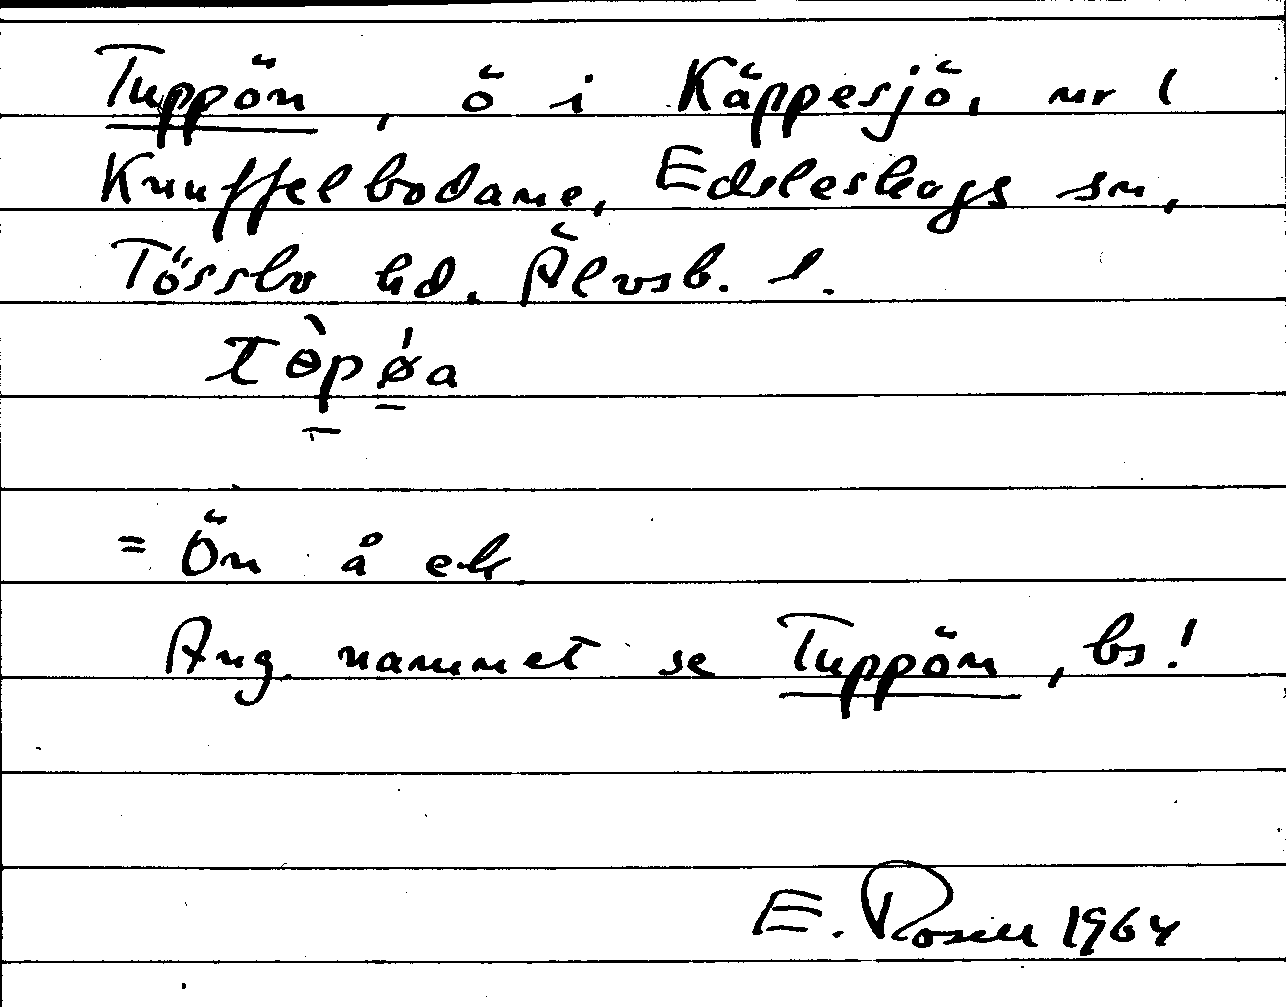 Tuppön, ö i Käppesjö, nr 1
Knuffelbodane, Edsleskogs sn,
Tössbo hd. Älvsb. l.
tɵ̀pǿa
= Ön å ek
Ang. namnet se Tuppön, bs!
E. Rosell 1964